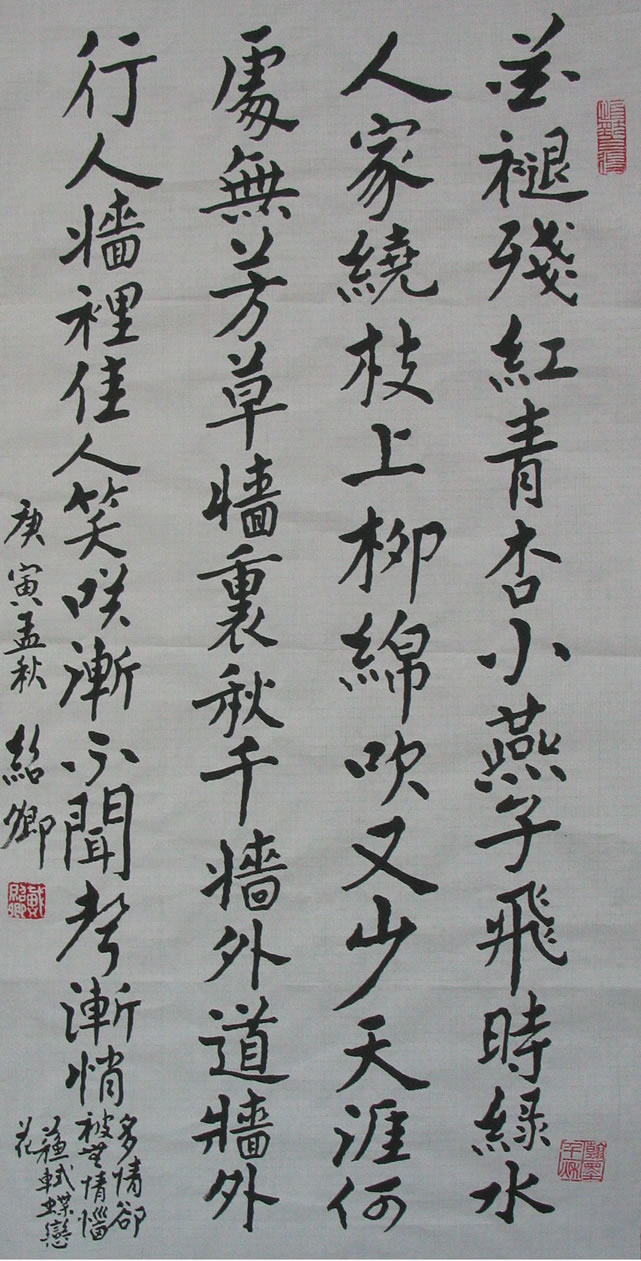 花褪殘紅青杏小燕子飛時綠水
人家繞枝上柳綿吹又少天涯何
處無芳草牆裏秋千牆外道牆外
行人牆裡佳人笑咲漸不聞聲漸悄
多情卻
被無情惱
蘇軾蝶戀
花
庚寅孟秋 紹卿
戴紹卿